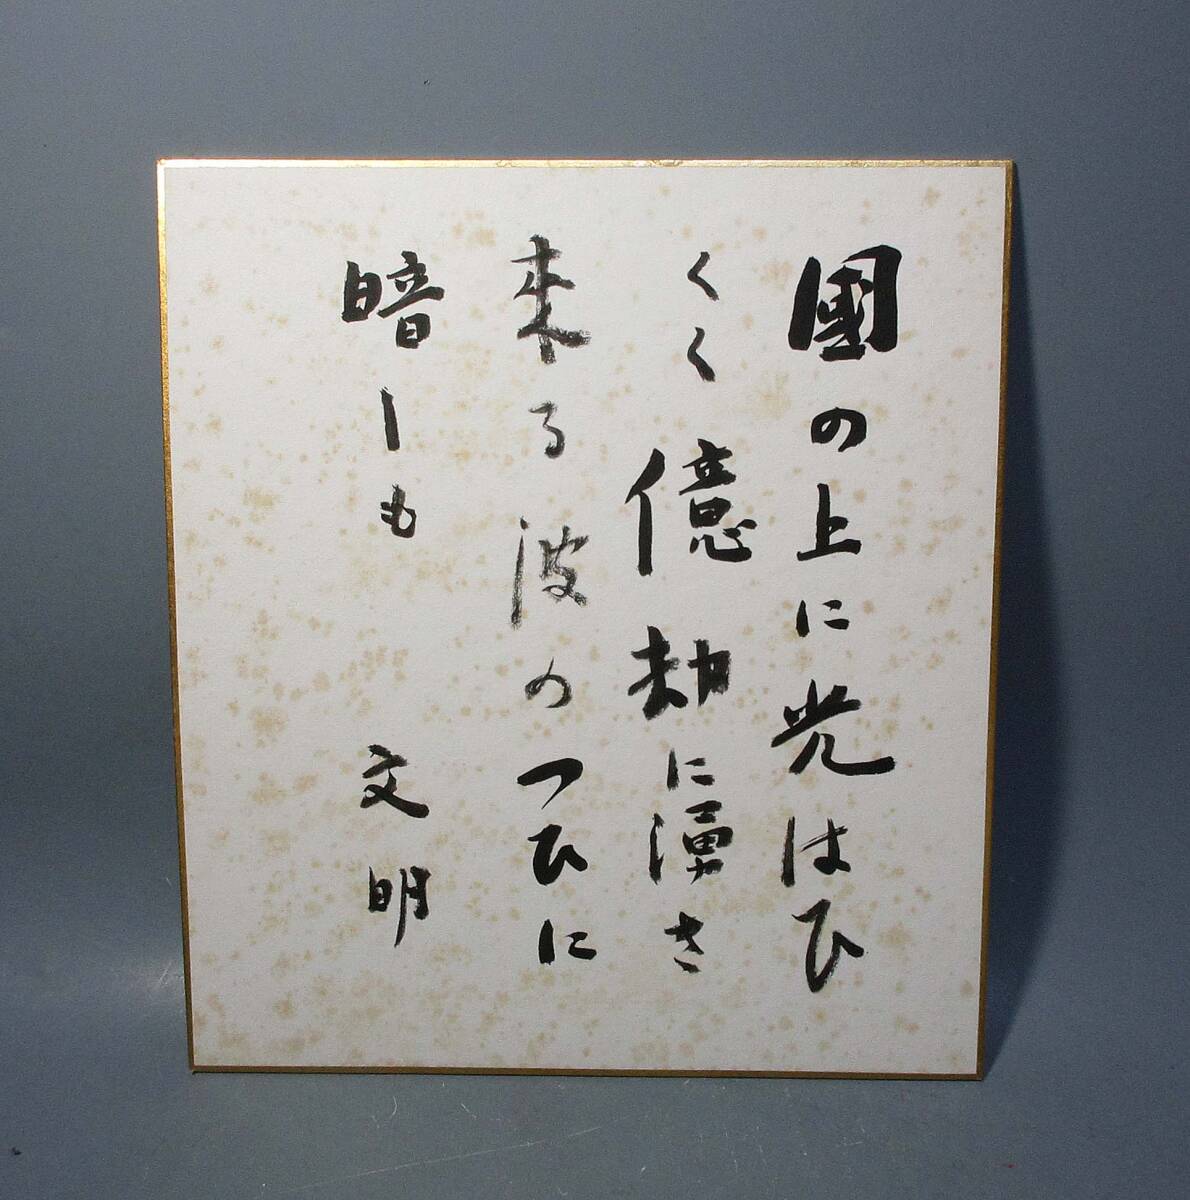 國の上に光はひ
くく億劫に湧き
来る波のつひに
暗しも　文明